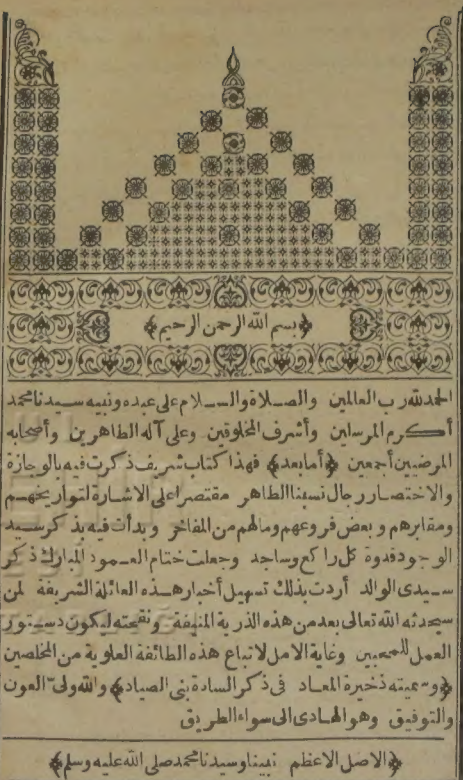 ﴿بسم الله الرحمن الرحيم﴾
الحمد لله رب العالمين والصلاة والسلام على عبده ونبيه سيدنا محمد
أكرم المرسلين وأشرف المخلوقين وعلى آله الطاهرين وأصحابه
المرضيين أجمعين ﴿أما بعد﴾ فهذا كتاب شريف ذكرت فيه بالوجازة
والاختصار رجال نسبنا الطاهر مقتصرا على الاشارة لتواريخهم
ومقابرهم وبعض فروعهم وما لهم من المفاخر وبدأت فيه بذكر سيد
الوجود قدوة كل راكع وساجد وجعلت ختام العمود المبارك ذكر
سيدي الوالد أردت بذلك تسهيل أخبار هذه العائلة الشريفة لمن
سيحدثه الله تعالى بعد من هذه الذرية المنيفة ونقحته ليكون دستور
العمل للمحبين وغاية الامل لاتباع هذه الطائفة العلوية من المخلصين
﴿وسميته ذخيرة المعاد في ذكر السادة بني الصياد﴾ والله ولي العون
والتوفيق وهو الهادى الى سواء الطريق
﴿الاصل الاعظم نبينا وسيدنا محمد صلى الله عليه وسلم﴾